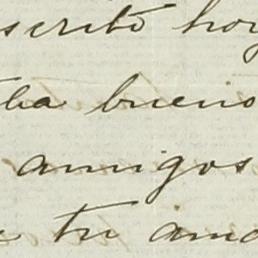 scrito hoy
ba bueno
amigos
tu ama